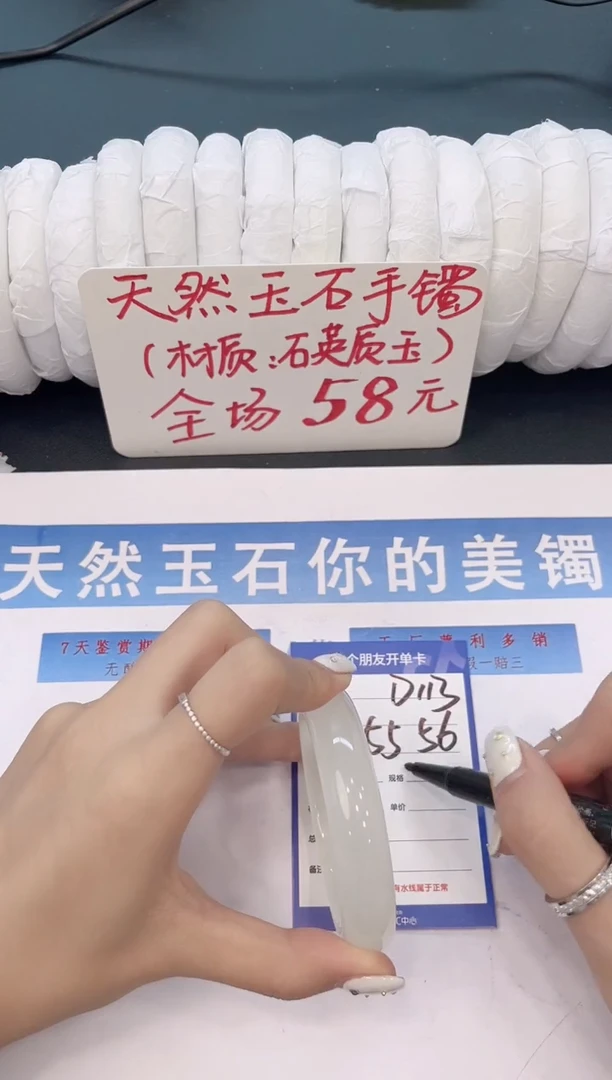 天然玉石手镯
（材质：石英质玉）
全场58元
天然玉石你的美镯
7天鉴赏期
利多销
假一赔三
个朋友开单卡
D113
55 56
规格
单价
有水线属于正常
汇中心